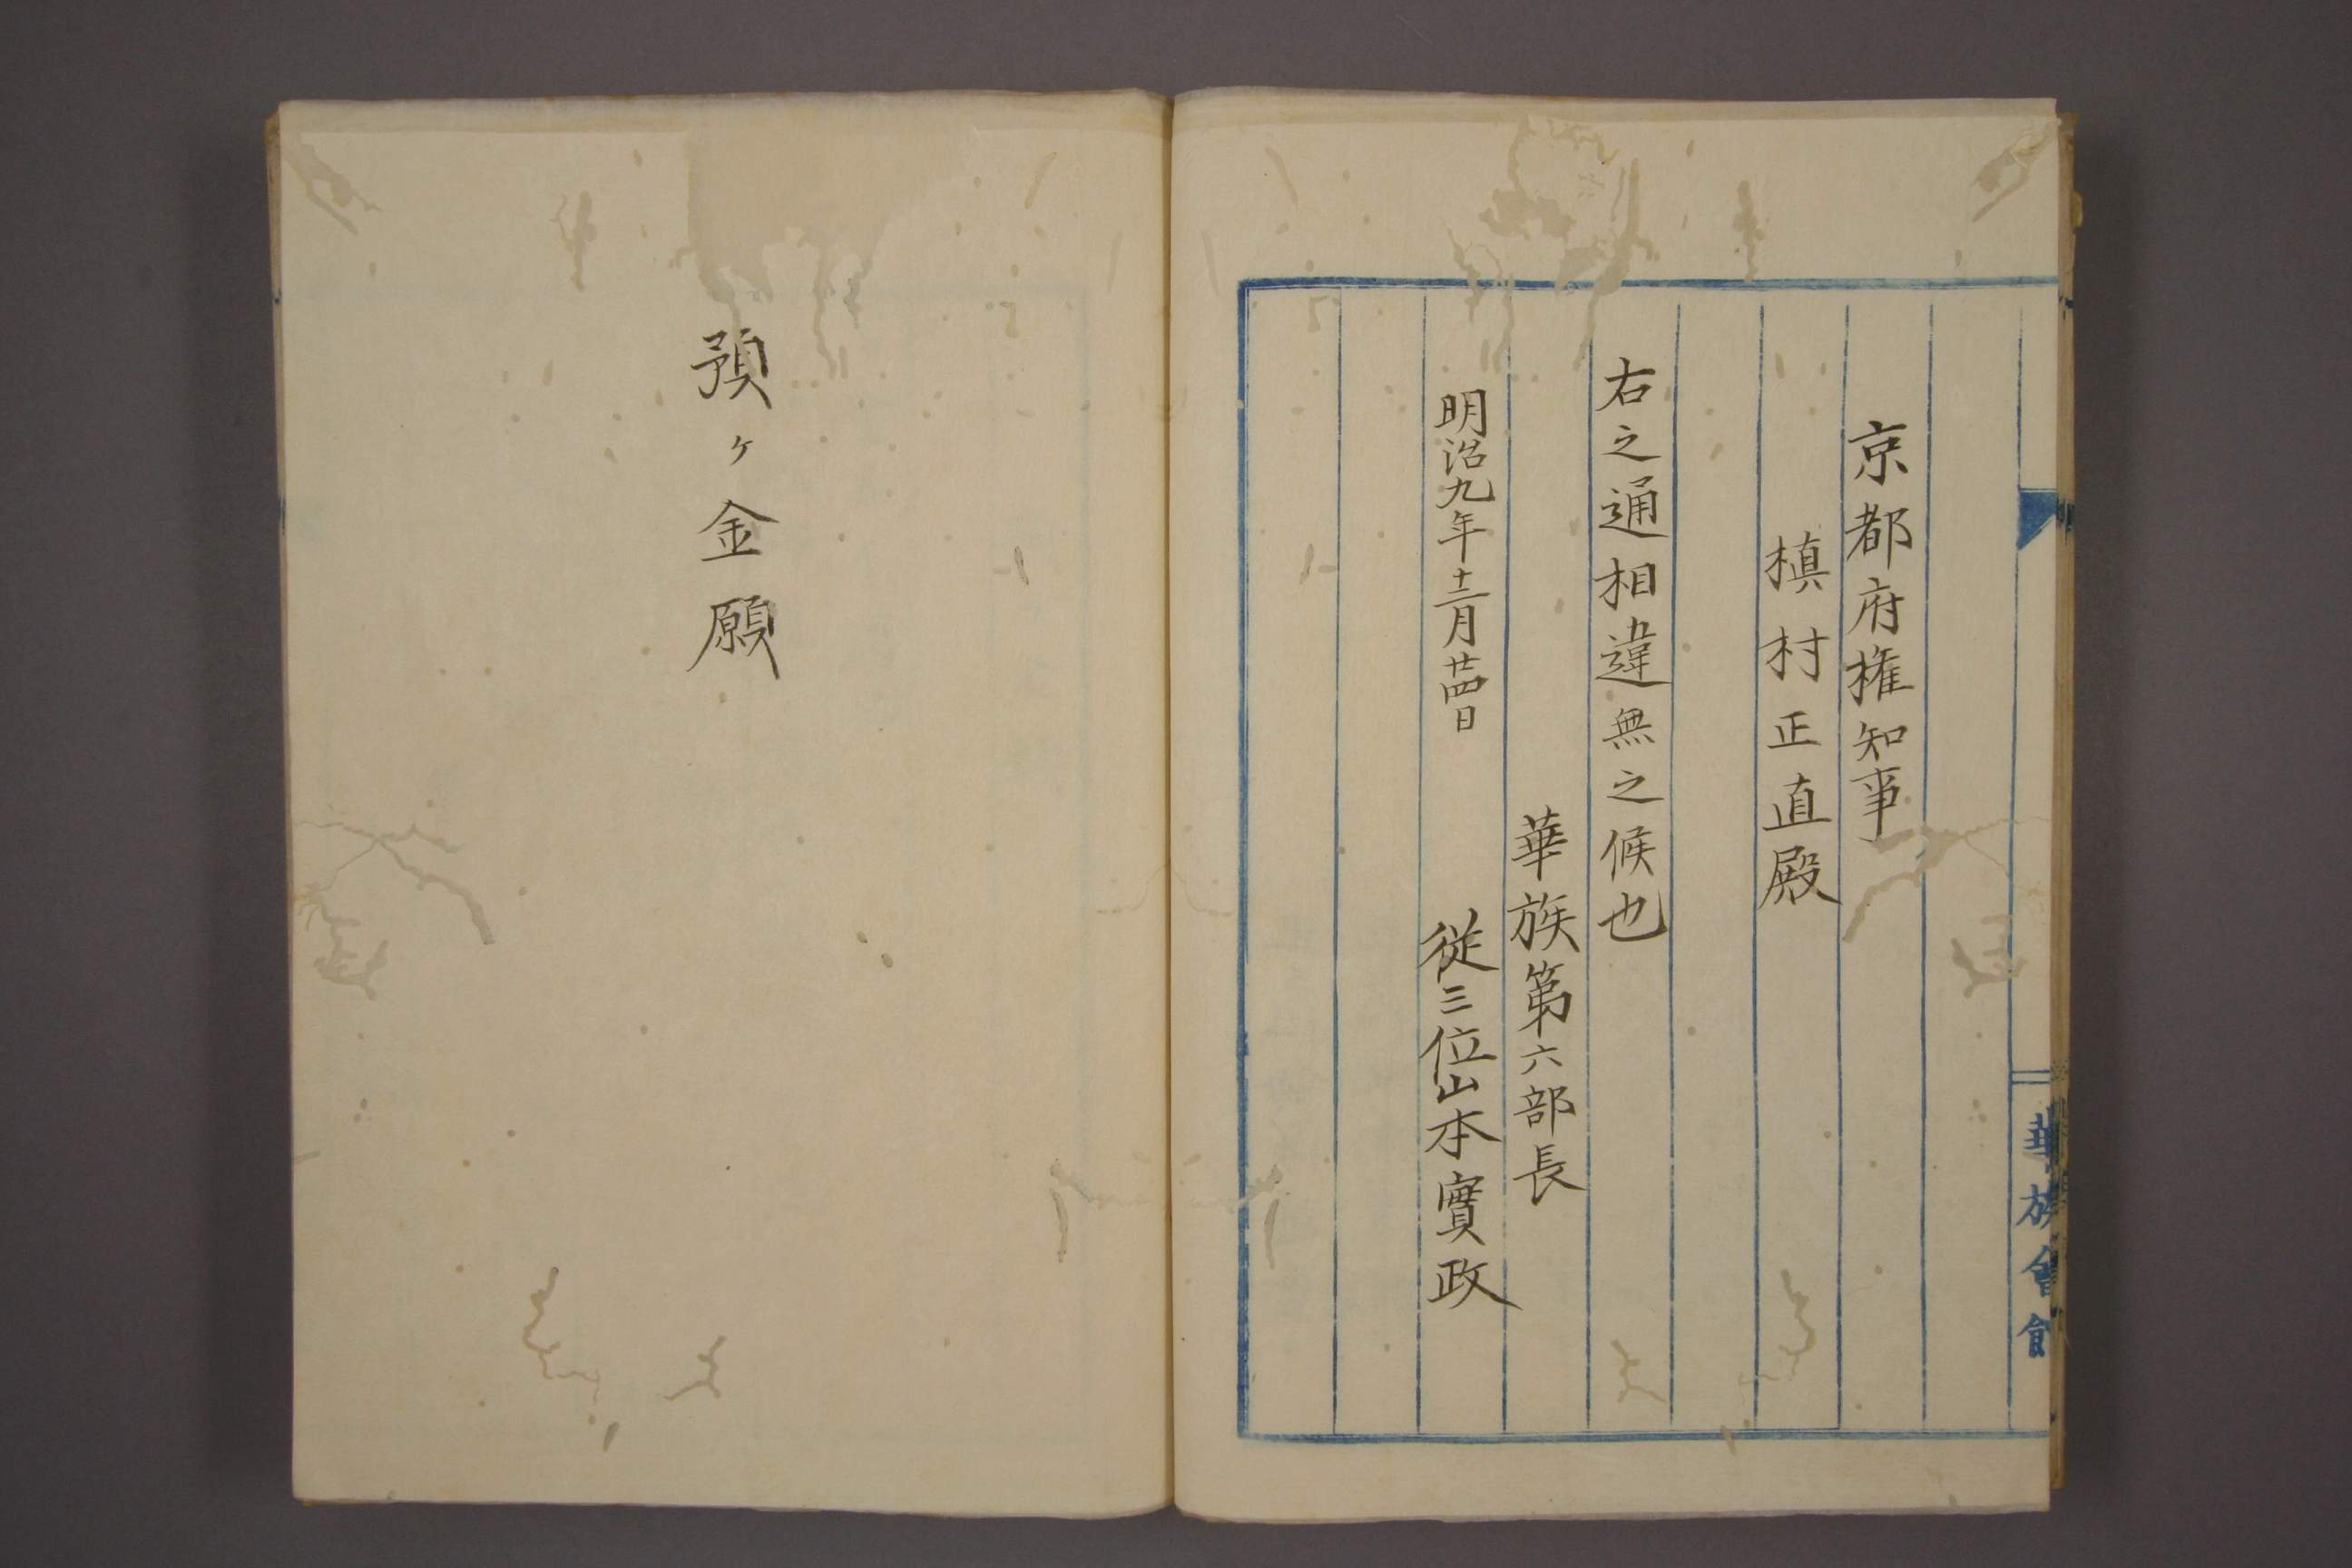 京都府権知事
槇村正直殿
右之通相違無之候也
華族第六部長
明治九年十二月廿四日 従三位山本實政
華族會館
預ヶ金願